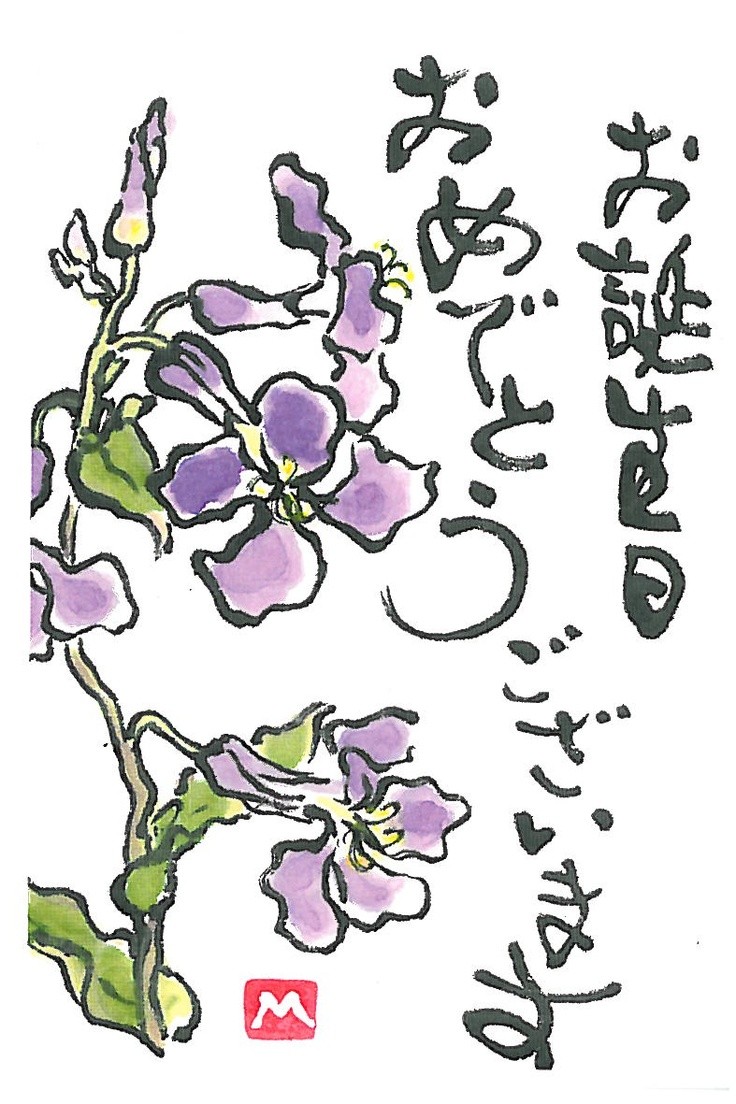 お誕生日
おめでとう
ございます
M